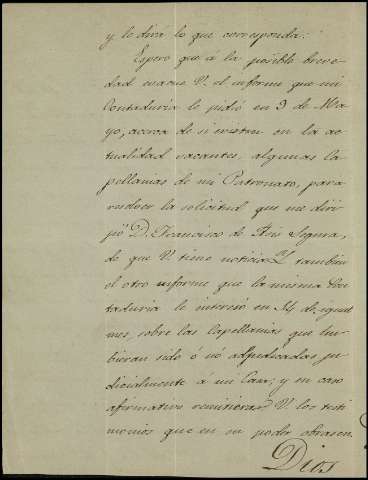 y le dirá lo que corresponda.
Espero que á la posible breve-
dad evacue V. el informe que mi
Contaduría le pidió en 9 de Ma-
yo, acerca de si existen en la ac-
tualidad vacantes, algunas Ca-
pellanias de mi Patronato, para
resolver la solicitud que me diri-
jió D. Francisco de Asis Segura,
de que V. tiene noticia. Y tambien
el otro informe que la misma Con-
taduría le interesó en 14 de igual
mes, sobre las Capellanias que hu-
bieran sido ó no adjudicadas ju-
dicialmente á mi Casa; y en caso
afirmativo remitiera V. los testi-
monios que en su poder obrasen.
Dios